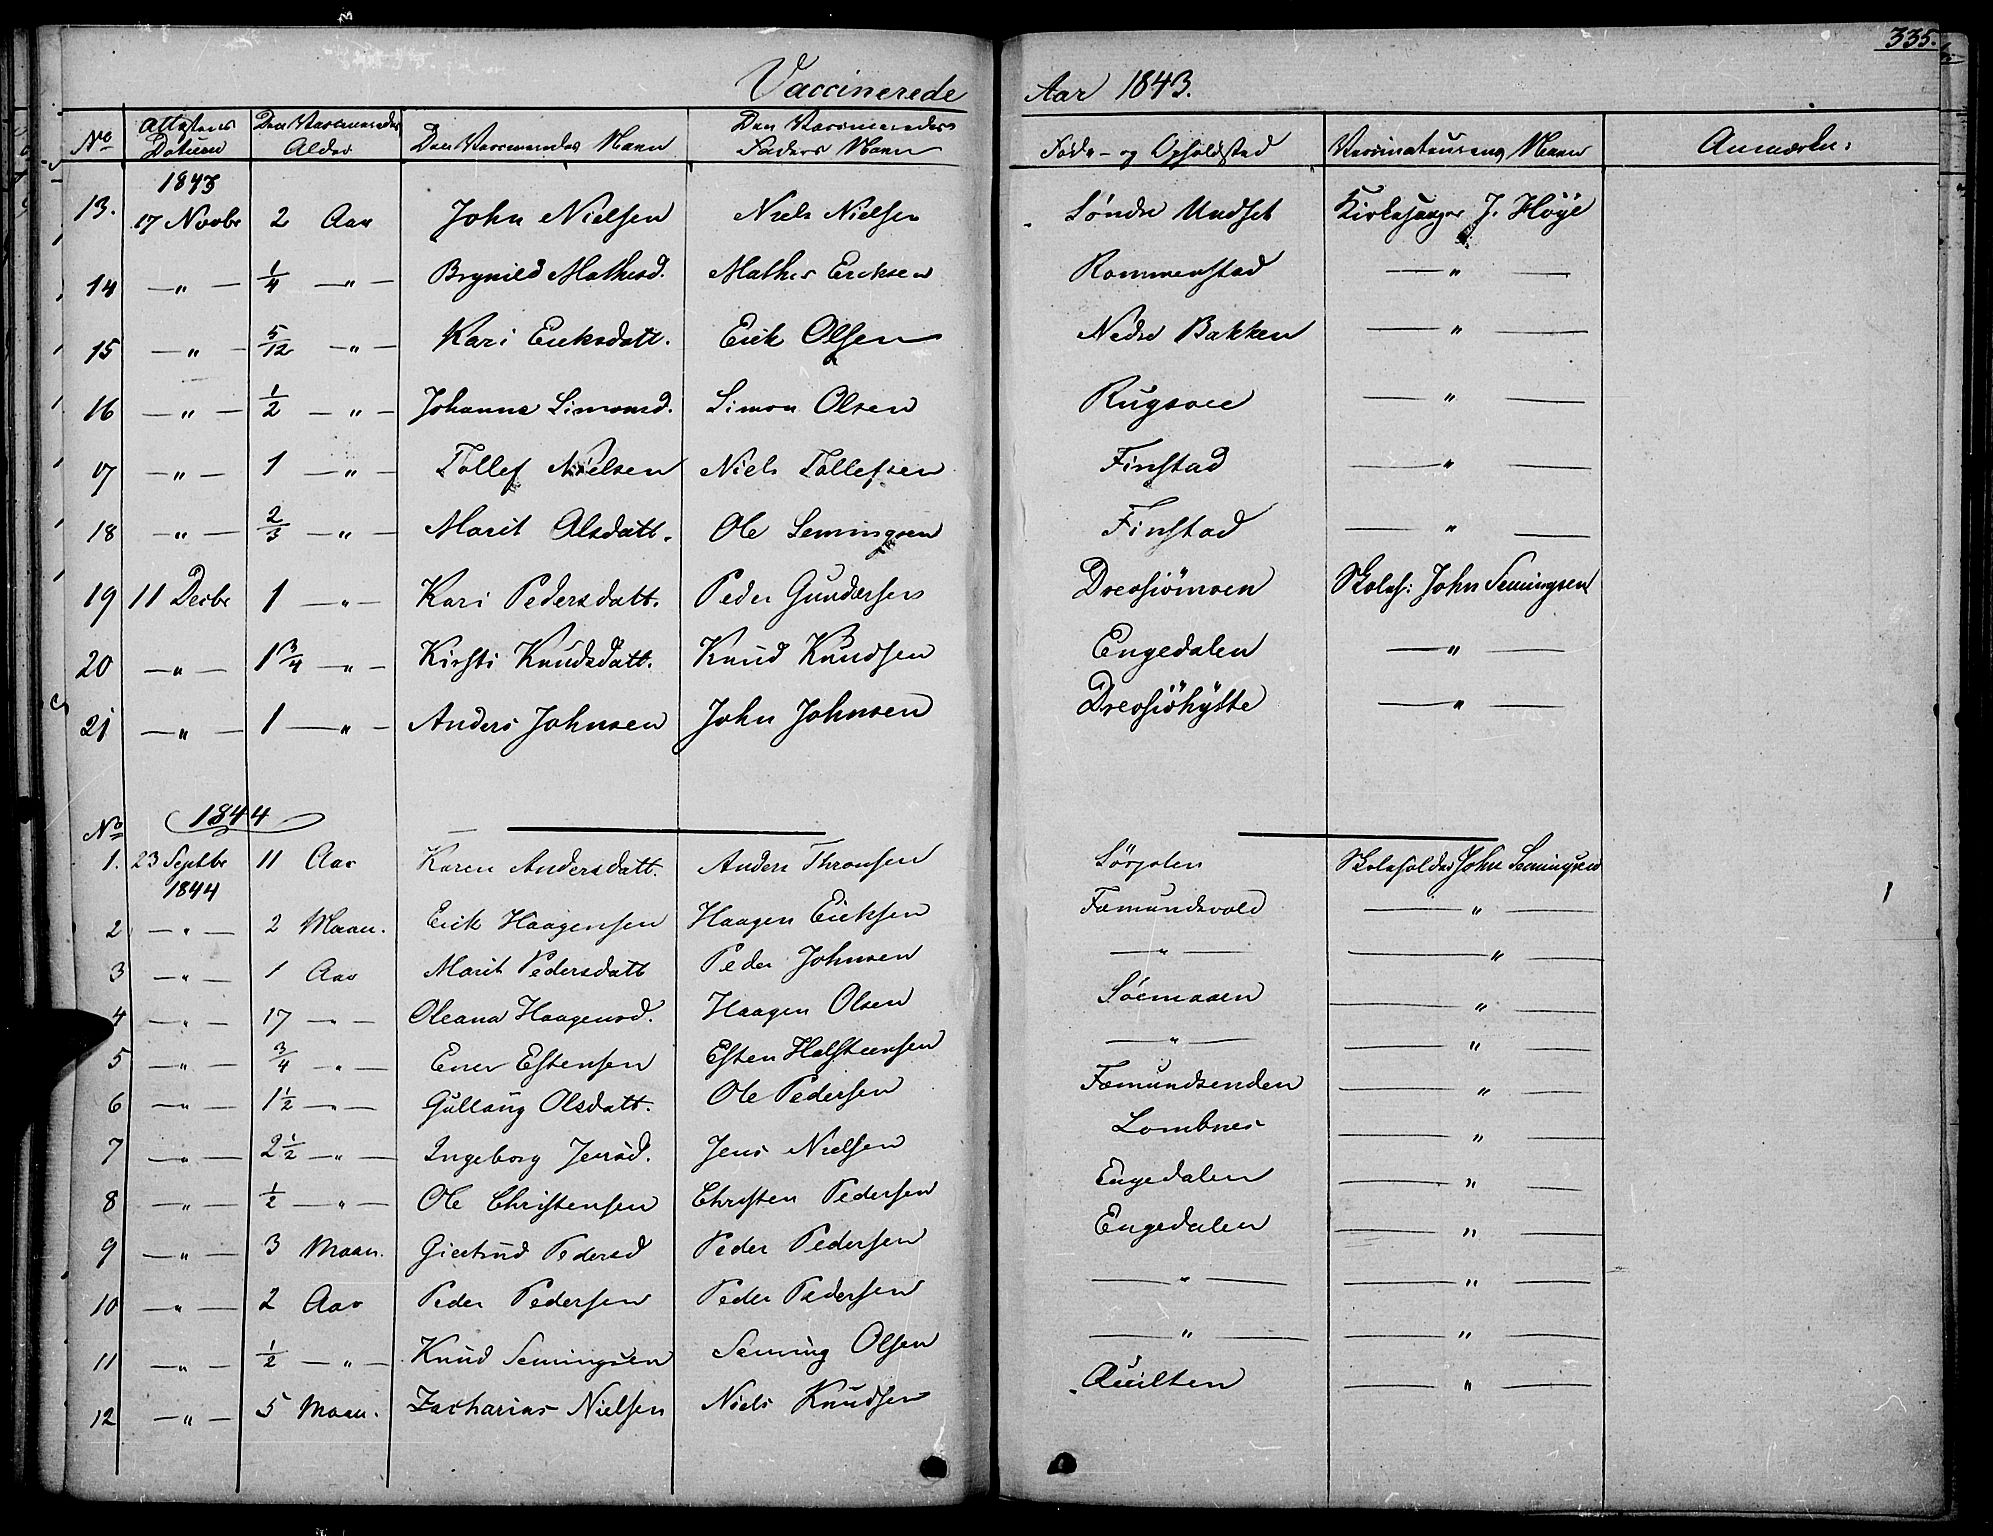 335.
Vaccinerede Aar 1843.
No Attestens Datum Den Vaccineredes Alder Den Vaccineredes Navn Den Vaccineredes Faders Navn Føde- og Opholdsted Vaccinateurens Navn Anmærkn:
1843
13. 17 Novbr 2 Aar John Nielsen Niels Nielsen Søndre Undset Kirkesanger J. Höye
14 —"— 1/4 —"— Brynild Mathisd. Mathis Ericksen Rommenstad —"—
15 —"— 5/12 —"— Kari Ericksdatt. Erick Olsen Nedre Bakken —"—
16 —"— 1/2 —"— Johanne Simonsd. Simon Olsen Rugsvee —"—
17 —"— 1 —"— Tollef Nielsen Niels Tollefsen Finstad —"—
18 —"— 2/3 —"— Marit Olsdatt. Ole Semingsen Finstad —"—
19 11 Decbr 1 —"— Kari Pedersdatt. Peder Gundersen Drevsiömoen Skoleh: John Semingsen
20 —"— 1 3/4 —"— Kirsti Knudsdatt. Knud Knudsen Engedalen —"—
21 —"— 1 —"— Anders Johnsen John Johnsen Drevsiöhytte —"—
No 1844
1. 23 Septbr 11 Aar Karen Andersdatt. Anders Thronsen Sörjolen Skoleholder John Semingsen
1844
2 —"— 2 Maan. Erick Haagensen Haagen Ericksen Fæmundsvold —"—
3 —"— 1 Aar Marit Pedersdatt Peder Johnsen —"— —"—
4 —"— 17 —"— Oleana Haagensd. Haagen Olsen Söemaaen —"—
5 —"— 3/4 —"— Ener Estensen Esten Halsteensen —"— —"—
6 —"— 1 1/2 —"— Gullaug Olsdatt. Ole Pedersen Fæmundsenden —"—
7 —"— 2 1/2 —"— Ingeborg Jensd. Jens Nielsen Lombnes —"—
8 —"— 1/2 —"— Ole Christensen Christen Pedersen Engedalen —"—
9 —"— 3 Maan. Giertrud Pedersd Peder Pedersen Engedalen —"—
10 —"— 2 Aar Peder Pedersen Peder Pedersen —"— —"—
11 —"— 1/2 —"— Knud Semingsen Seming Olsen —"— —"—
12 —"— 5 Maan. Zacharias Nielsen Niels Knudsen Quilten —"—